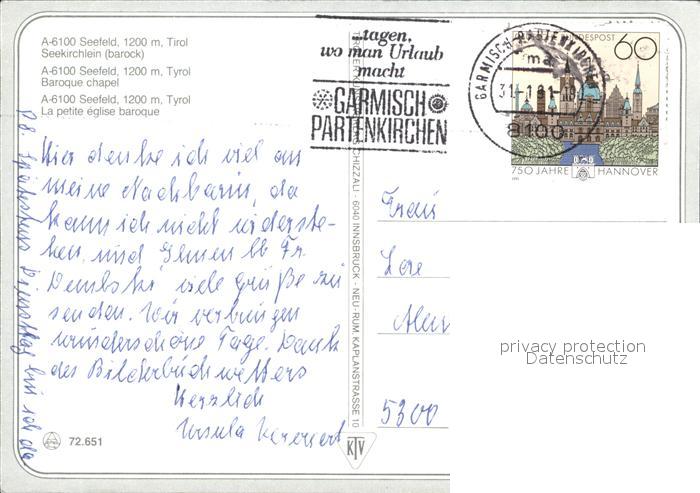 A-6100 Seefeld, 1200 m, Tirol
Seekirchlein (barock)
A-6100 Seefeld, 1200 m, Tyrol
Baroque chapel
A-6100 Seefeld, 1200 m, Tyrol
La petite église baroque
...tagen,
wo man Urlaub
macht
GARMISCH
PARTENKIRCHEN
GARMISCH-PARTENKIRCHEN
8100
BUNDESPOST 60
750 JAHRE HANNOVER
Hier denke ich viel an
meine Nachbarin, da
kann ich nicht widerste-
hen, und Ihnen lb Fr.
viele Grüße zu
senden. Wir verbringen
wunderschöne Tage. Dank
des Bilderbuchwetters
Herzlich
Ursula
P.S. spätestens Dienstag bin ich da
SCHIZZALI - 6040 INNSBRUCK - NEU-RUM KAPLANSTRASSE 10
Frau
Lore
5300
72.651
KTV
privacy protection
Datenschutz